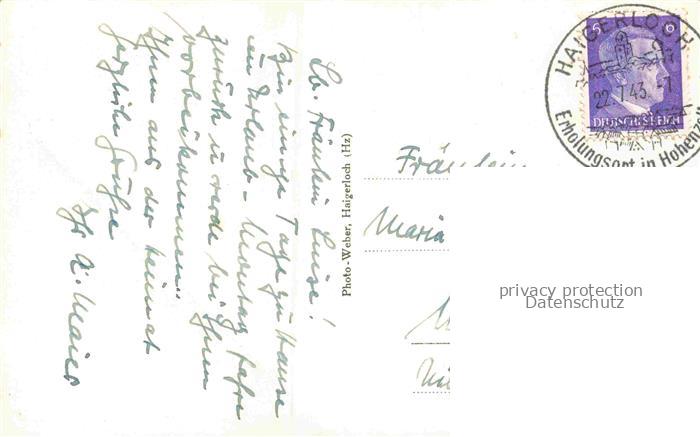 Lb. Fräulein Luise!
Bin einige Tage zu Hause
in Urlaub - Montag fahre
zurück u. werde bei Ihnen
vorbeikommen.
Ihnen aus der Heimat
herzliche Grüße
Ihr A. Maier
Photo-Weber, Haigerloch (Hz)
HAIGERLOCH
22.7.43.-7
Erholungsort in Hohenzoll
6 6
DEUTSCHES REICH
Fräulein
Maria
privacy protection
Datenschutz